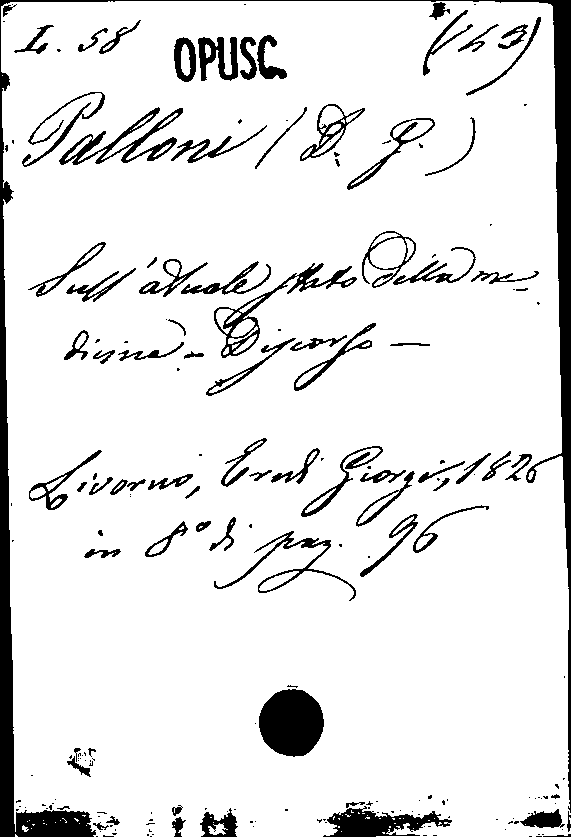 L. 58 OPUSC. (143)
Palloni (D. G.)
Sull'attuale stato della me-
dicina - Discorso -
Livorno, Eredi Giorgi, 1826
in 8° di pag. 96